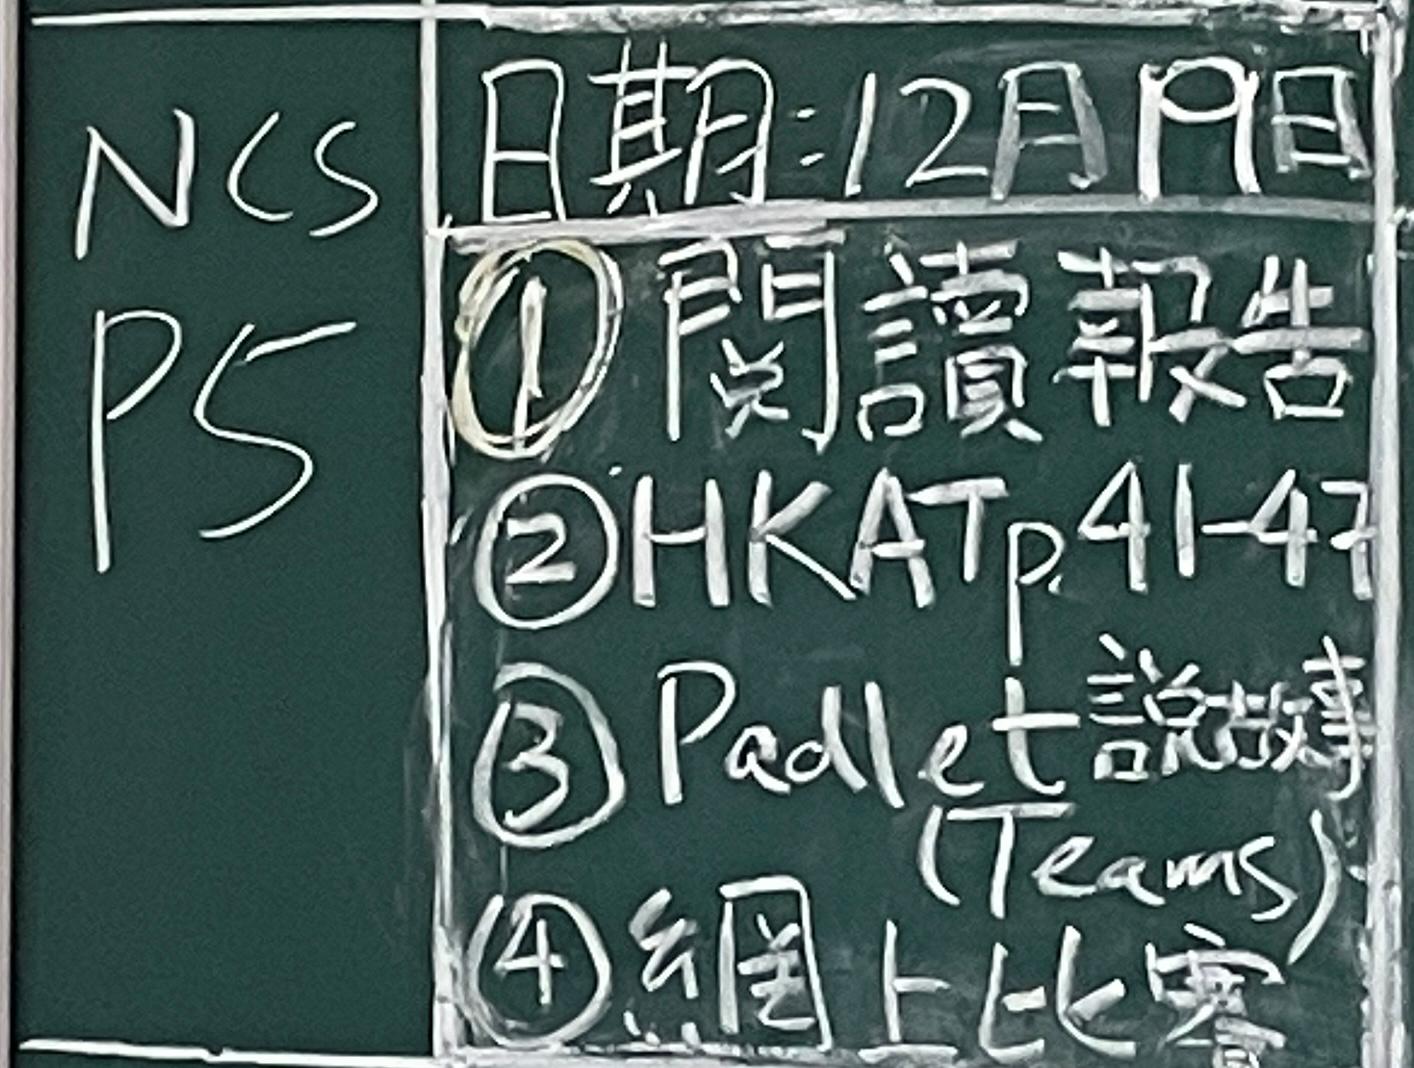 NCS
P5
日期:12月19日
① 閱讀報告
② HKAT p.41-47
③ Padlet 說故事
(Teams)
④ 網上比賽